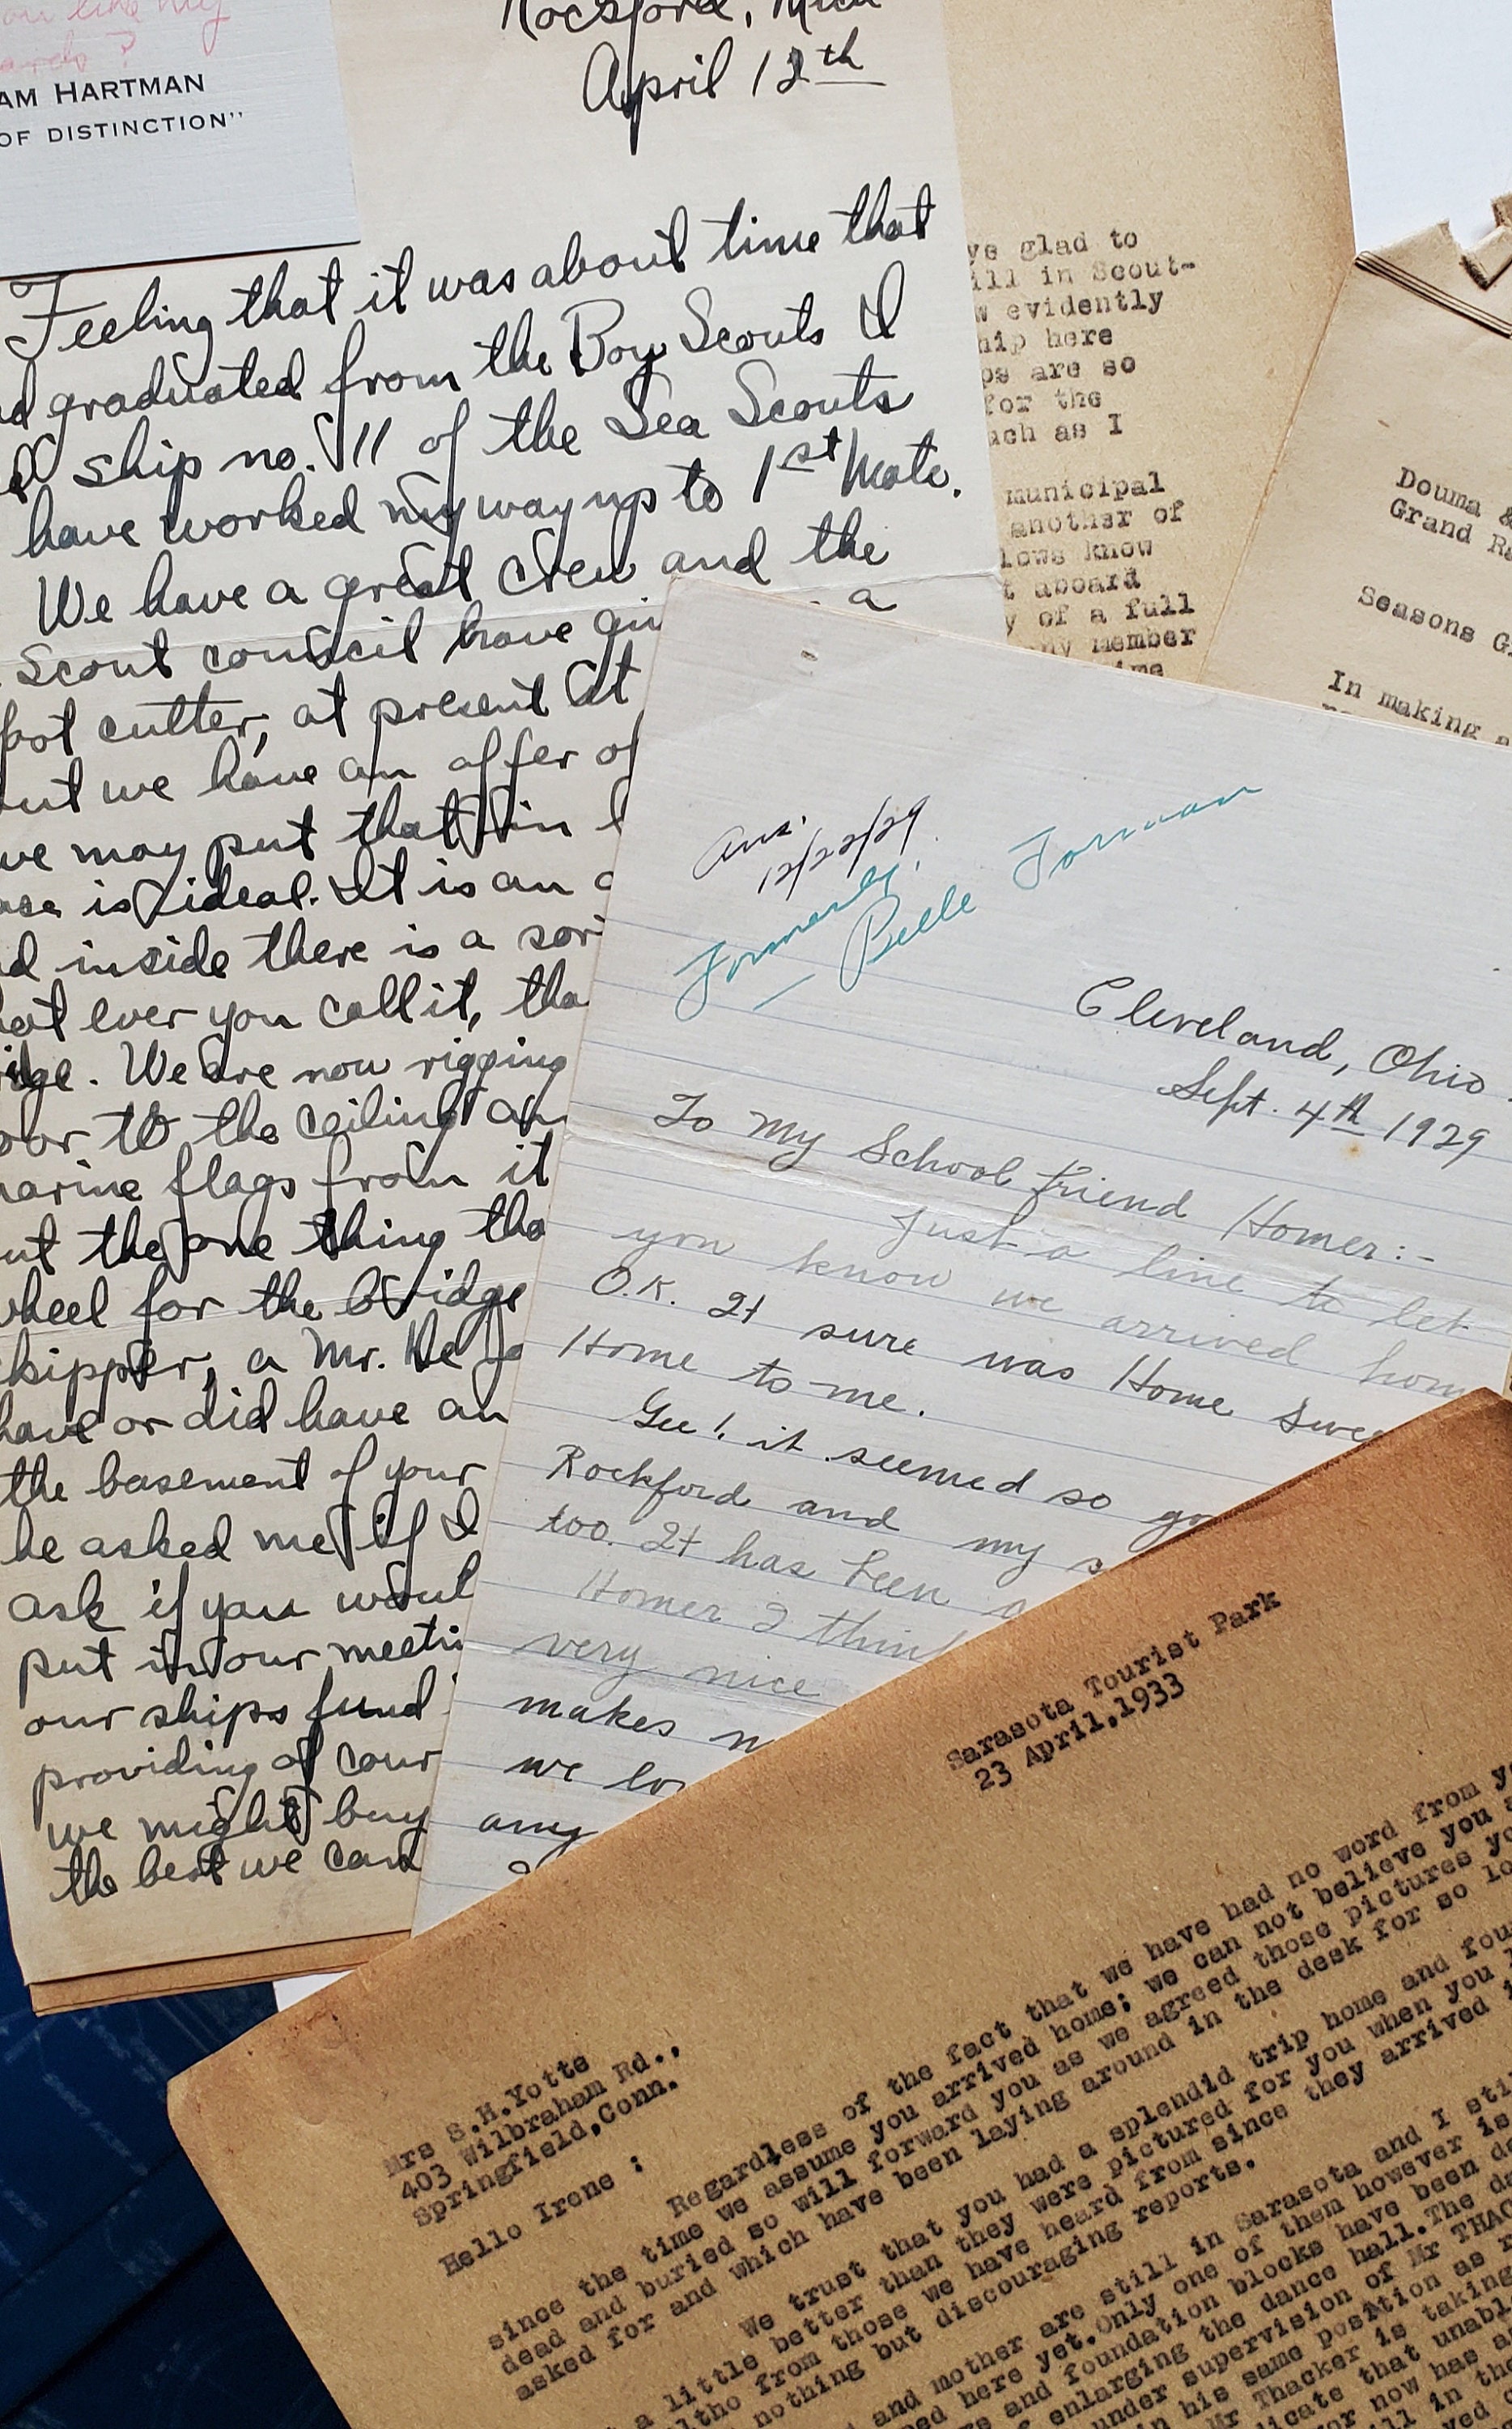 you like my
cards?
AM HARTMAN
OF DISTINCTION"
Rockford, Mich
April 12th
Feeling that it was about time that
graduated from the Boy Scouts I
ship no. 11 of the Sea Scouts
have worked my way up to 1st Mate.
We have a great crew and the
Scout council have gi
a
foot cutter, at present at
but we have an offer of
we may put that in
is ideal. It is an
inside there is a
what ever you call it, tha
We are now rigging
to the ceiling an
marine flags from it
but the one thing tha
wheel for the bridge
skipper, a Mr. De
have or did have an
the basement of your
he asked me if I
ask if you woul
put in our meeti
our ships fund
providing of cour
we might buy
the best we can
ve glad to
ill in Scout-
w evidently
hip here
ps are so
for the
uch as I
municipal
another of
lows know
t aboard
y of a full
ny member
ime
Douma &
Grand Ra
Seasons G
In making a
Ans.
12/22/29
Formerly,
Belle Forman
Cleveland, Ohio.
Sept. 4th 1929
To My School friend Homer:-
Just a line to let
you know we arrived hom
O.K. It sure was Home Swee
Home to me.
Gee! it seemed so go
Rockford and my s
too. It has been a
Homer I think
very nice
makes
we lo
any
Sarasota Tourist Park
23 April,1933
Mrs S.H.Yotte
403 Wilbraham Rd.,
Springfield,Conn.
Hello Irene :
Regardless of the fact that we have had no word from yo
since the time we assume you arrived home; we can not believe you a
dead and buried so will forward you as we agreed those pictures yo
asked for and which have been laying around in the desk for so lo
We trust that you had a splendid trip home and fou
a little better than they were pictured for you when you
altho from those we have heard from since they arrived i
nothing but discouraging reports.
and mother are still in Sarasota and I stil
ed here yet.Only one of them however is
rs and foundation blocks have been de
f enlarging the dance hall.The de
under supervision of Mr THAC
in his same position as
Mr Thacker is taking
dicate that unabl
or now has a
ll in the